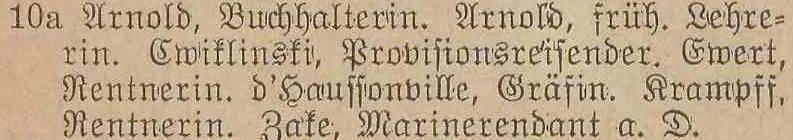 10a Arnold, Buchhalterin. Arnold, früh. Lehre=
rin. Cwiklinski, Provisionsreisender. Ewert,
Rentnerin. d'Haussonville, Gräfin. Krampff,
Rentnerin. Zake, Marinerendant a. D.